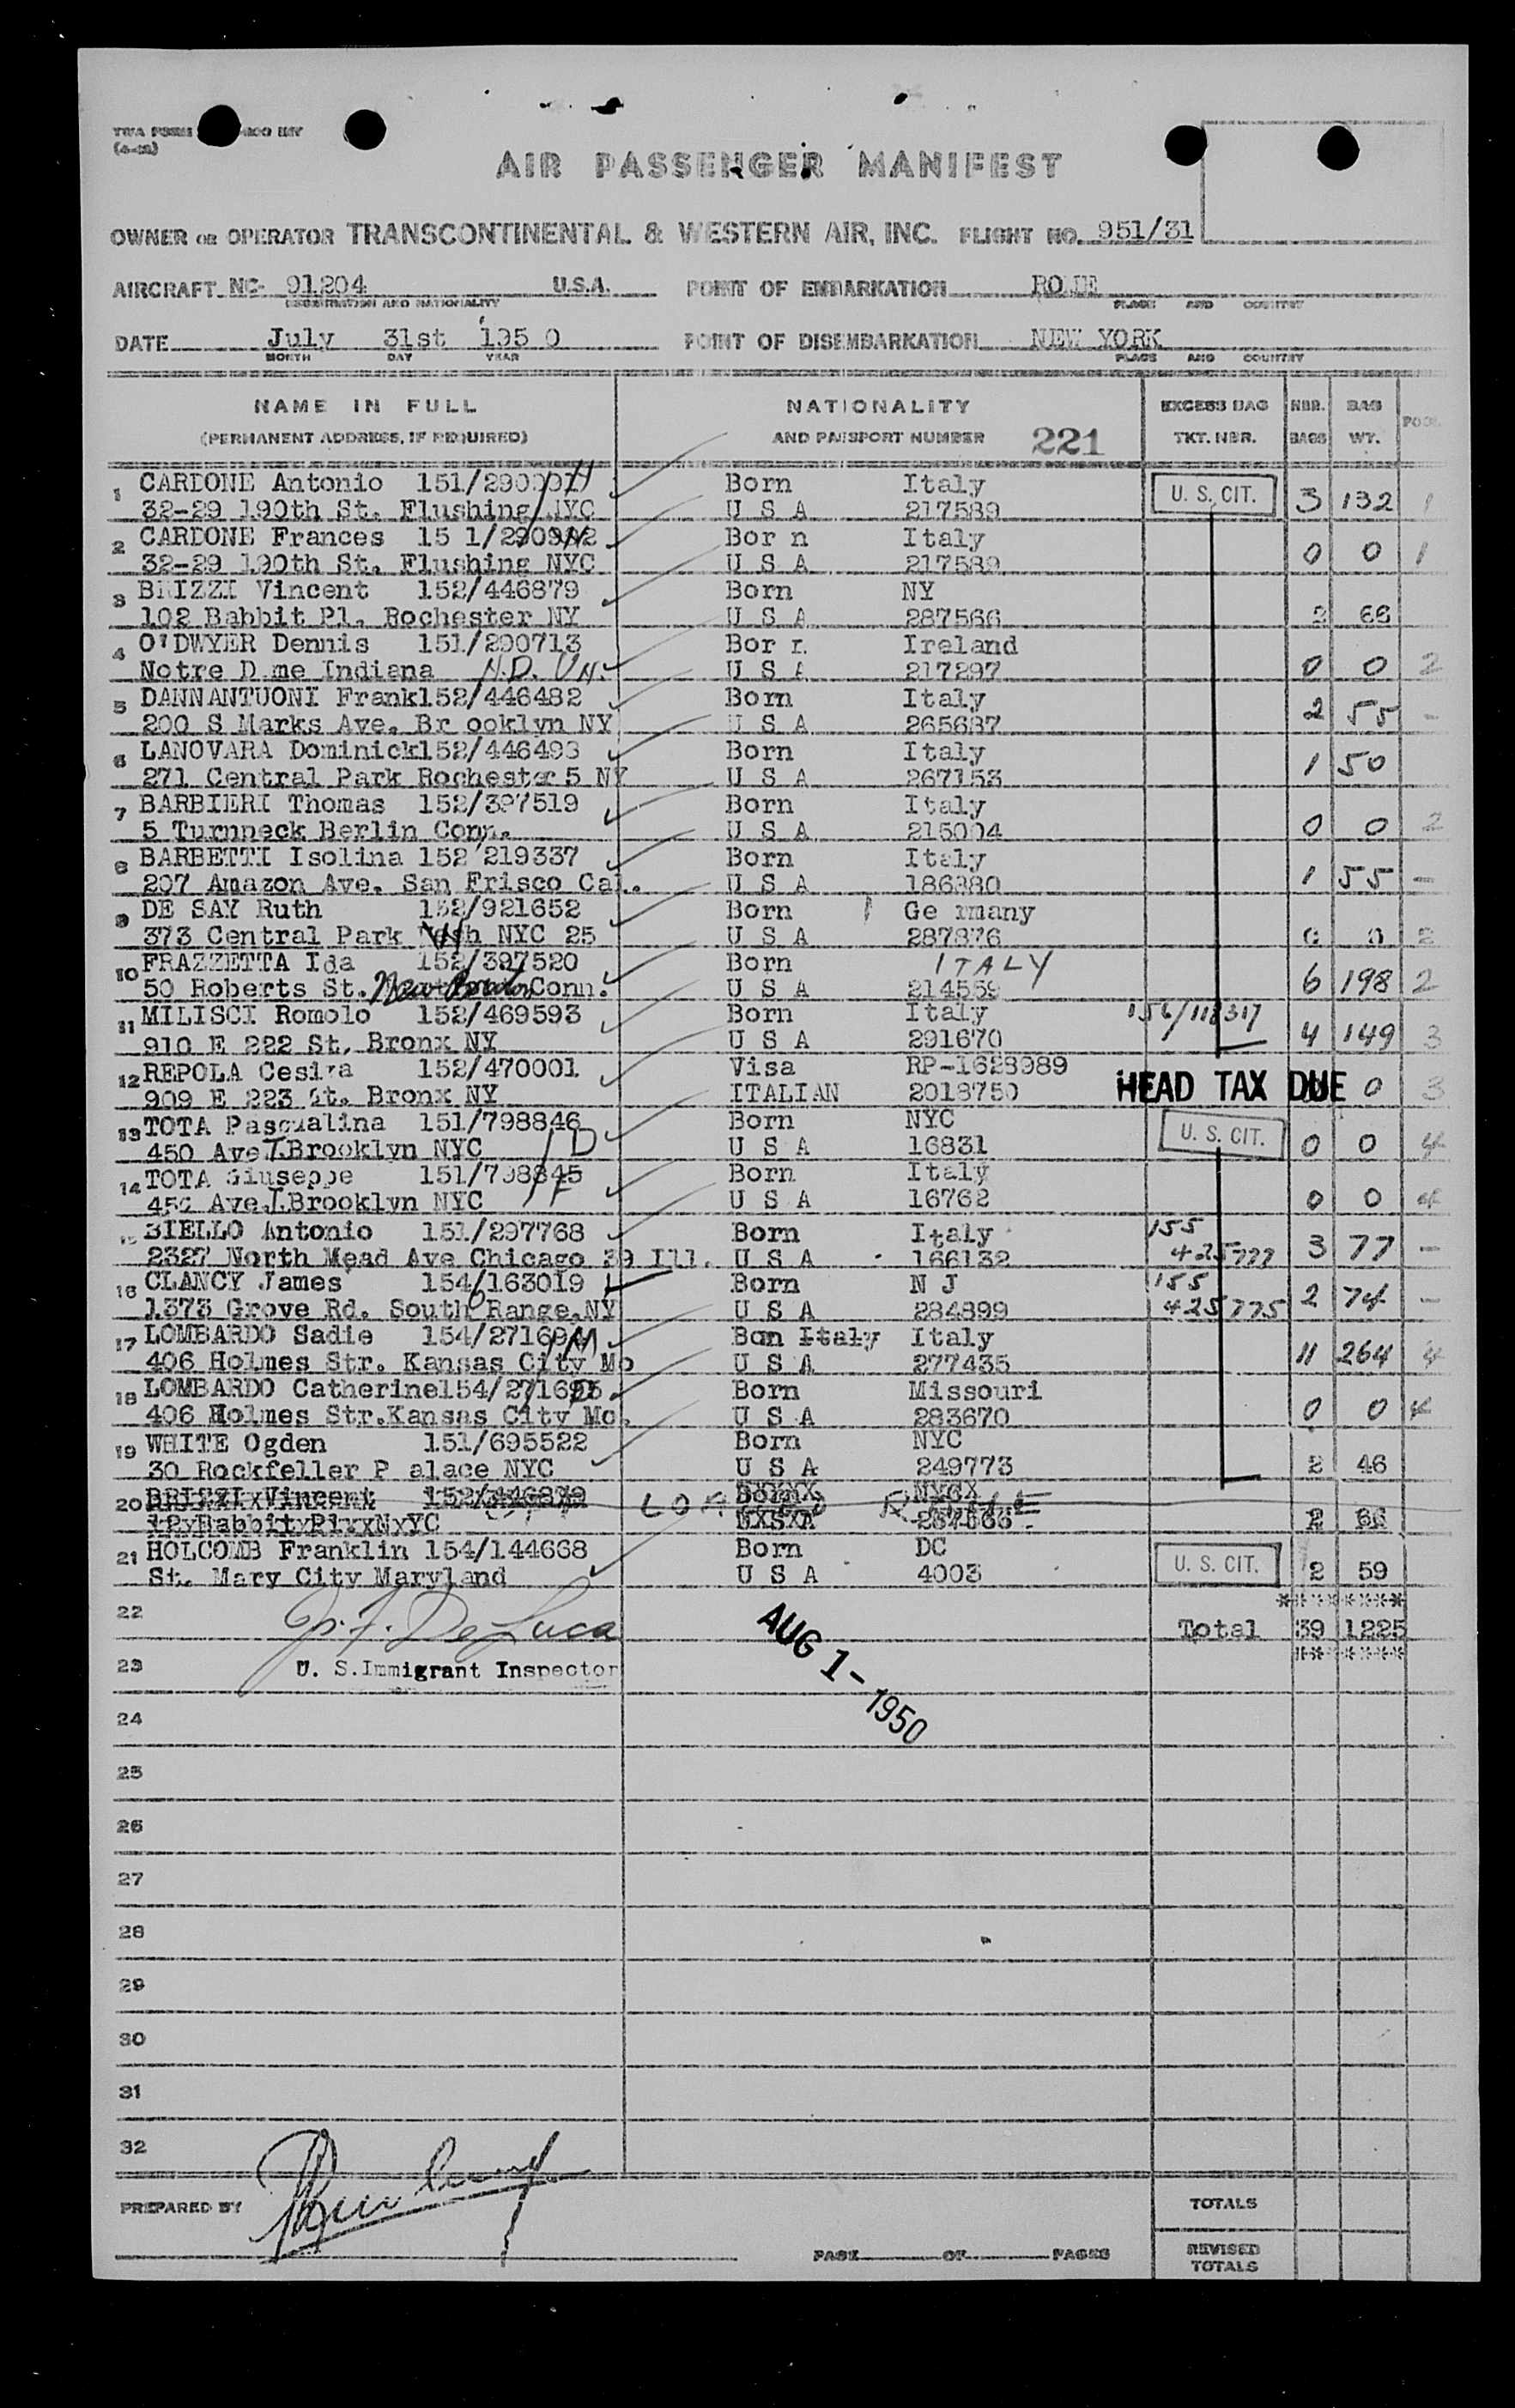 AIR PASSENGER MANIFEST
OWNER OR OPERATOR TRANSCONTINENTAL & WESTERN AIR, INC. FLIGHT NO. 951/31
AIRCRAFT NC- 91204 U.S.A. POINT OF EMBARKATION ROME
REGISTRATION AND NATIONALITY PLACE AND COUNTRY
DATE July 31st 195 0 POINT OF DISEMBARKATION NEW YORK
MONTH DAY YEAR PLACE AND COUNTRY
NAME IN FULL NATIONALITY EXCESS BAG NBR. BAG
(PERMANENT ADDRESS, IF REQUIRED) AND PASSPORT NUMBER 221 TKT. NBR. BAGS WT.
1 CARDONE Antonio Born Italy U. S. CIT. 3 132 1
32-29 190th St. Flushing NYC U S A 217589
2 CARDONE Frances Bor n Italy 0 0 1
32-29 190th St. Flushing NYC U S A 217589
3 BRIZZI Vincent 152/446879 Born NY
102 Babbit Pl. Rochester NY U S A 287566 2 66
4 O'DWYER Dennis 151/290713 Bor n Ireland
Notre Dame Indiana N.D. UN. U S A 217297 0 0 2
5 DANNANTUONI Frank152/446482 Born Italy 2 55 -
200 S Marks Ave. Br ooklyn NY U S A 265687
6 LANOVARA Dominick152/446493 Born Italy 1 50
271 Central Park Rochester 5 NY U S A 267153
7 BARBIERI Thomas 152/397519 Born Italy
5 Turnpeck Berlin Conn. U S A 215004 0 0 2
8 BARBETTI Isolina 152 219337 Born Italy
207 Amazon Ave. San Frisco Cal. U S A 186380 1 55 -
9 DE SAY Ruth 152/921652 Born Ge rmany
373 Central Park NYC 25 U S A 287876 0 0 2
10 FRAZZETTA Ida 152/397520 Born ITALY
50 Roberts St. Conn. U S A 214559 6 198 2
11 MILISCI Romolo 152/469593 Born Italy 156/118317
910 E 222 St. Bronx NY U S A 291670 4 149 3
12 REPOLA Cesira 152/470001 Visa RP-1628989
909 E 223 St. Bronx NY ITALIAN 2018750 HEAD TAX DUE 0 3
13 TOTA Pasqualina 151/798846 Born NYC U. S. CIT.
450 Ave J.Brooklyn NYC D U S A 16831 0 0 4
14 TOTA Giuseppe 151/798845 Born Italy
450 Ave J.Brooklyn NYC F U S A 16762 0 0 4
15 BIELLO Antonio 151/297768 Born Italy 155
2327 North Mead Ave Chicago 39 Ill. U S A 166132 425777 3 77 -
16 CLANCY James 154/163019 Born N J 155
1373 Grove Rd. South Range,NY U S A 284899 425775 2 74 -
17 LOMBARDO Sadie Bon Italy Italy
406 Holmes Str. Kansas City Mo U S A 277435 11 264 4
18 LOMBARDO Catherine Born Missouri
406 Holmes Str.Kansas City Mo. U S A 283670 0 0 4
19 WHITE Ogden 151/695522 Born NYC
30 Rockfeller P alace NYC U S A 249773 2 46
20 BRIZZI Vincent 152/446879
287566 2 66
21 HOLCOMB Franklin 154/144668 Born DC U. S. CIT.
St. Mary City Maryland U S A 4003 2 59
22 J. F. DeLuca Total 39 1225
23 U. S.Immigrant Inspector
AUG 1 - 1950
24
25
26
27
28
29
30
31
32
PREPARED BY TOTALS
PAGE OF PAGES REVISED
TOTALS